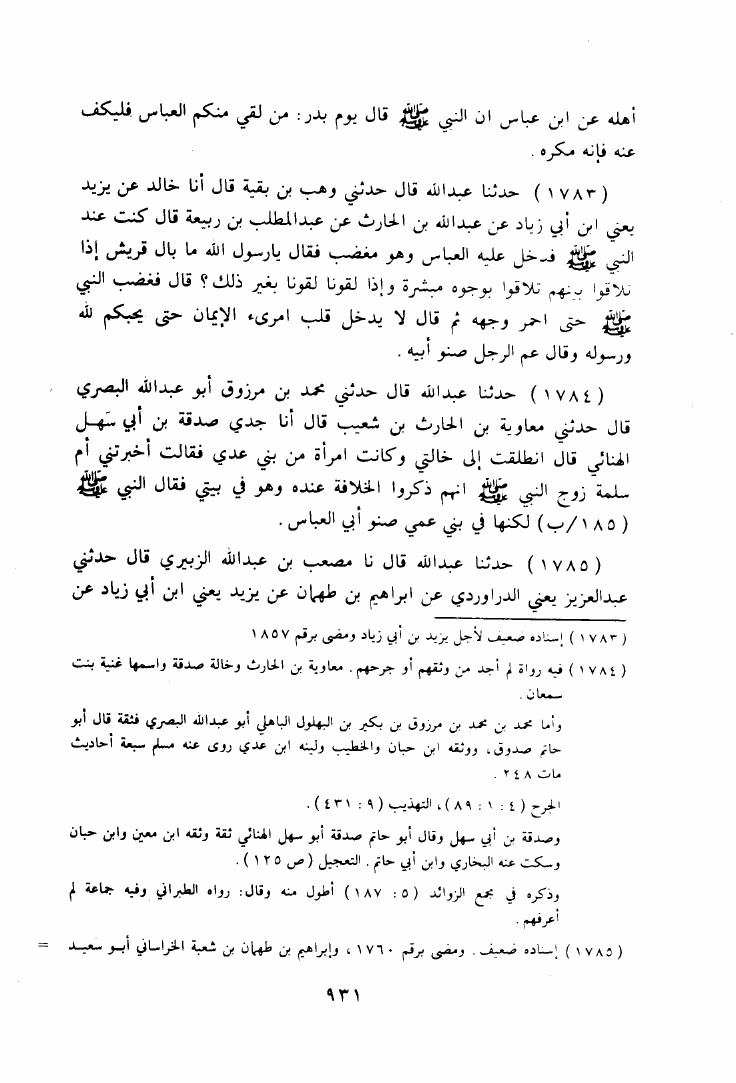 أهله عن ابن عباس ان النبي ﷺ قال يوم بدر: من لقي منكم العباس فليكف
عنه فإنه مكره .
(١٧٨٣) حدثنا عبدالله قال حدثني وهب بن بقية قال أنا خالد عن يزيد
يعني ابن أبي زياد عن عبدالله بن الحارث عن عبدالمطلب بن ربيعة قال كنت عند
النبي ﷺ فدخل عليه العباس وهو مغضب فقال يارسول الله ما بال قريش إذا
تلاقوا بينهم تلاقوا بوجوه مبشرة وإذا لقونا لقونا بغير ذلك؟ قال فغضب النبي
ﷺ حتى احمر وجهه ثم قال لا يدخل قلب امرىء الإيمان حتى يحبكم لله
ورسوله وقال عم الرجل صنو أبيه .
(١٧٨٤) حدثنا عبدالله قال حدثني محمد بن مرزوق أبو عبدالله البصري
قال حدثني معاوية بن الحارث بن شعيب قال أنا جدي صدقة بن أبي سَهـل
الهنائي قال انطلقت إلى خالتي وكانت امرأة من بني عدي فقالت أخبرتني أم
سلمة زوج النبي ﷺ انهم ذكروا الخلافة عنده وهو في بيتي فقال النبي ﷺ
(١٨٥/ب) لكنها في بني عمي صنو أبي العباس .
(١٧٨٥) حدثنا عبدالله قال نا مصعب بن عبدالله الزبيري قال حدثني
عبدالعزيز يعني الدراوردي عن ابراهيم بن طهمان عن يزيد يعني ابن أبي زياد عن
(١٧٨٣) إسناده ضعيف لأجل يزيد بن أبي زياد ومضى برقم ١٨٥٧
(١٧٨٤) فيه رواة لم أجد من وثقهم أو جرحهم . معاوية بن الحارث وخالة صدقة واسمها غنية بنت
سمعان .
وأما محمد بن محمد بن مرزوق بن بكير بن البهلول الباهلي أبو عبدالله البصري فثقة قال أبو
حاتم صدوق، ووثقه ابن حبان والخطيب ولينه ابن عدي روى عنه مسلم سبعة أحاديث
مات ٢٤٨ .
الجرح (٤ : ١ : ٨٩)، التهذيب (٩ : ٤٣١) .
وصدقة بن أبي سهل وقال أبو حاتم صدقة أبو سهل الهنائي ثقة وثقه ابن معين وابن حبان
وسكت عنه البخاري وابن أبي حاتم . التعجيل (ص ١٢٥) .
وذكره في مجمع الزوائد (٥ : ١٨٧) أطول منه وقال: رواه الطبراني وفيه جماعة لم
أعرفهم .
(١٧٨٥) إسناده ضعيف . ومضى برقم ١٧٦٠ ، وإبراهيم بن طهمان بن شعبة الخراساني أبـو سعيـد =
٩٣١